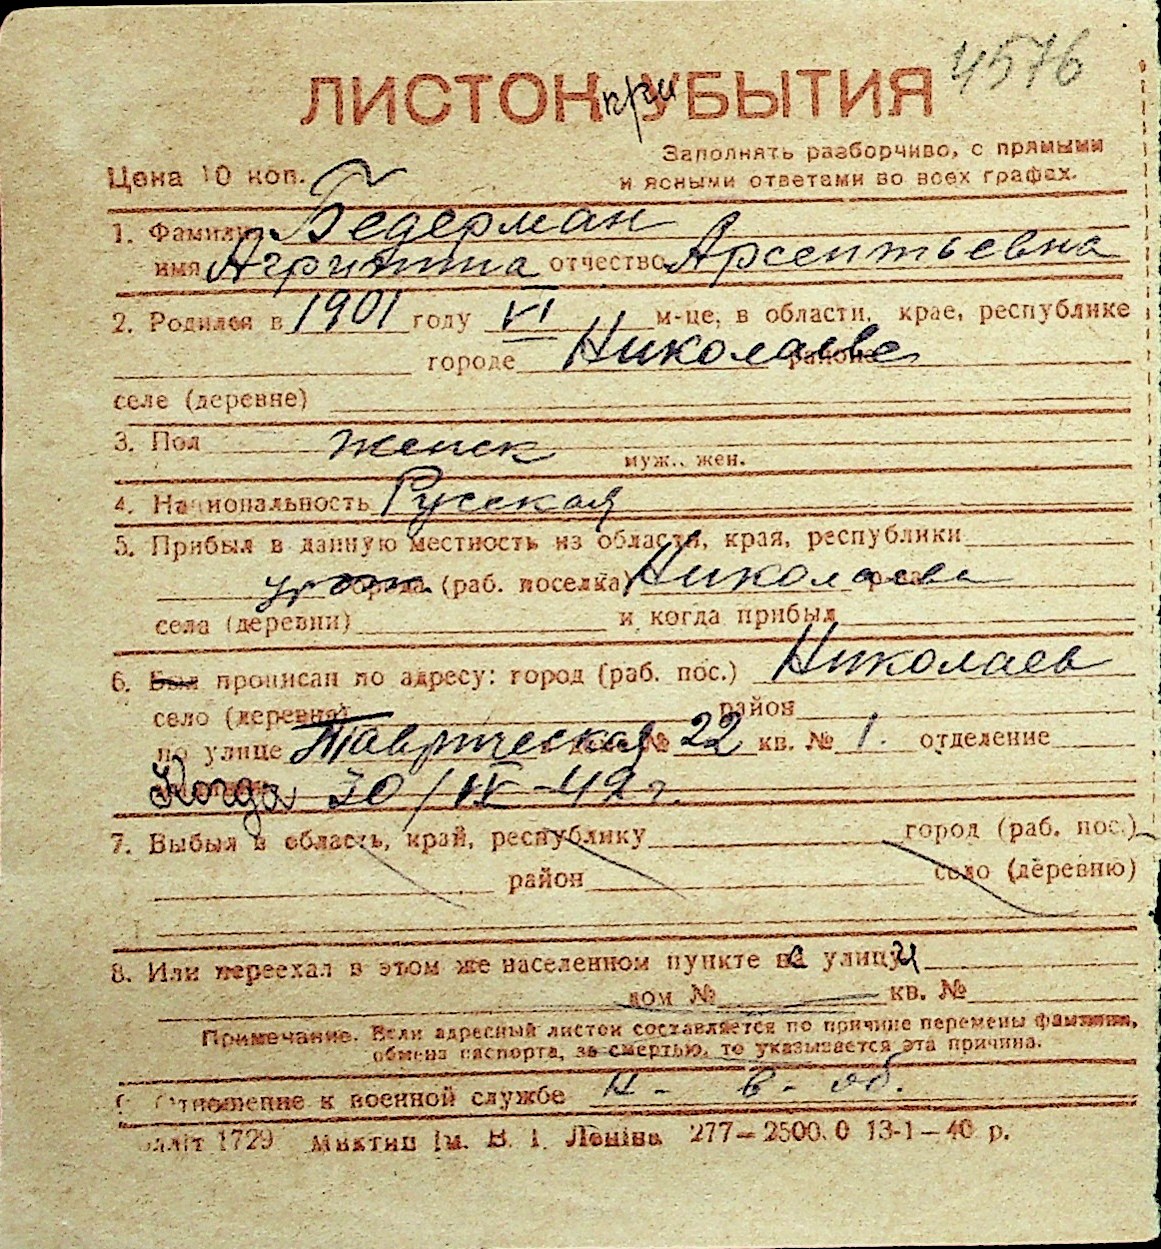 4576
ЛИСТОК при УБЫТИЯ
Заполнять разборчиво, с прямыми
и ясными ответами во всех графах.
Цена 10 коп.
1. Фамилия Бедерман
имя Агрипина отчество Арсентьевна
2. Родился в 1901 году VI м-це, в области, крае, республике
городе Николаеве районе
селе (деревне)
3. Пол женск муж., жен.
4. Национальность Русская
5. Прибыл в данную местность из области, края, республики
города (раб. поселка) Николаева р-на
села (деревни) и когда прибыл
6. Был прописан по адресу: город (раб. пос.) Николаев
село (деревня) район
по улице Таврическая № 22 кв. № 1. отделение
Когда 30/IX-42 г.
7. Выбыл в область, край, республику город (раб. пос.)
район село (деревню)
8. Или переехал в этом же населенном пункте на улицу
дом № кв. №
Примечание. Если адресный листок составляется по причине перемены фамилии,
обмена паспорта, за смертью, то указывается эта причина.
9. Отношение к военной службе н - в - об.
1729 Миктип ім. В. І. Леніна 277—2500.0 13-1—40 р.